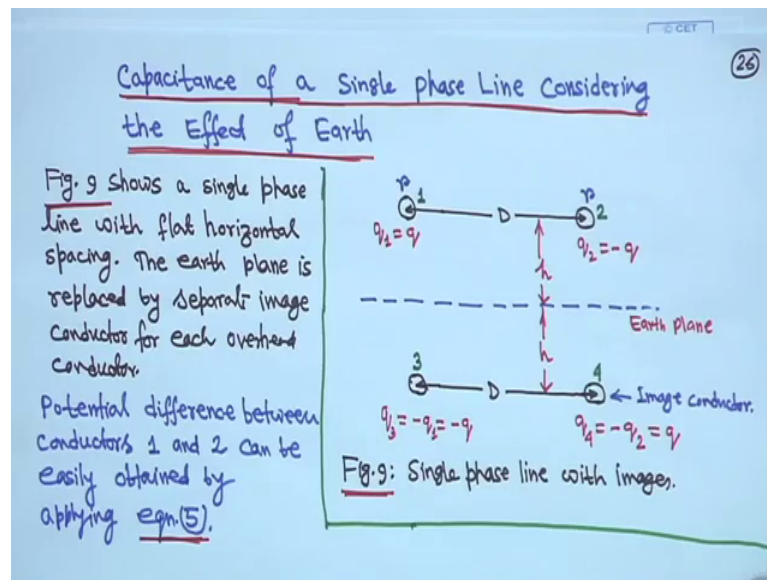 © CET
26
Capacitance of a Single Phase Line Considering
the Effect of Earth
Fig. 9 Shows a single phase
line with flat horizontal
spacing. The earth plane is
replaced by separate image
conductor for each overhead
conductor.
Potential difference between
conductors 1 and 2 can be
easily obtained by
applying eqn.(5).
r 1
D
r 2
q1 = q
q2 = -q
h
Earth plane
h
3
D
4
Image conductor.
q3 = -q1 = -q
q4 = -q2 = q
Fig.9: Single phase line with images.